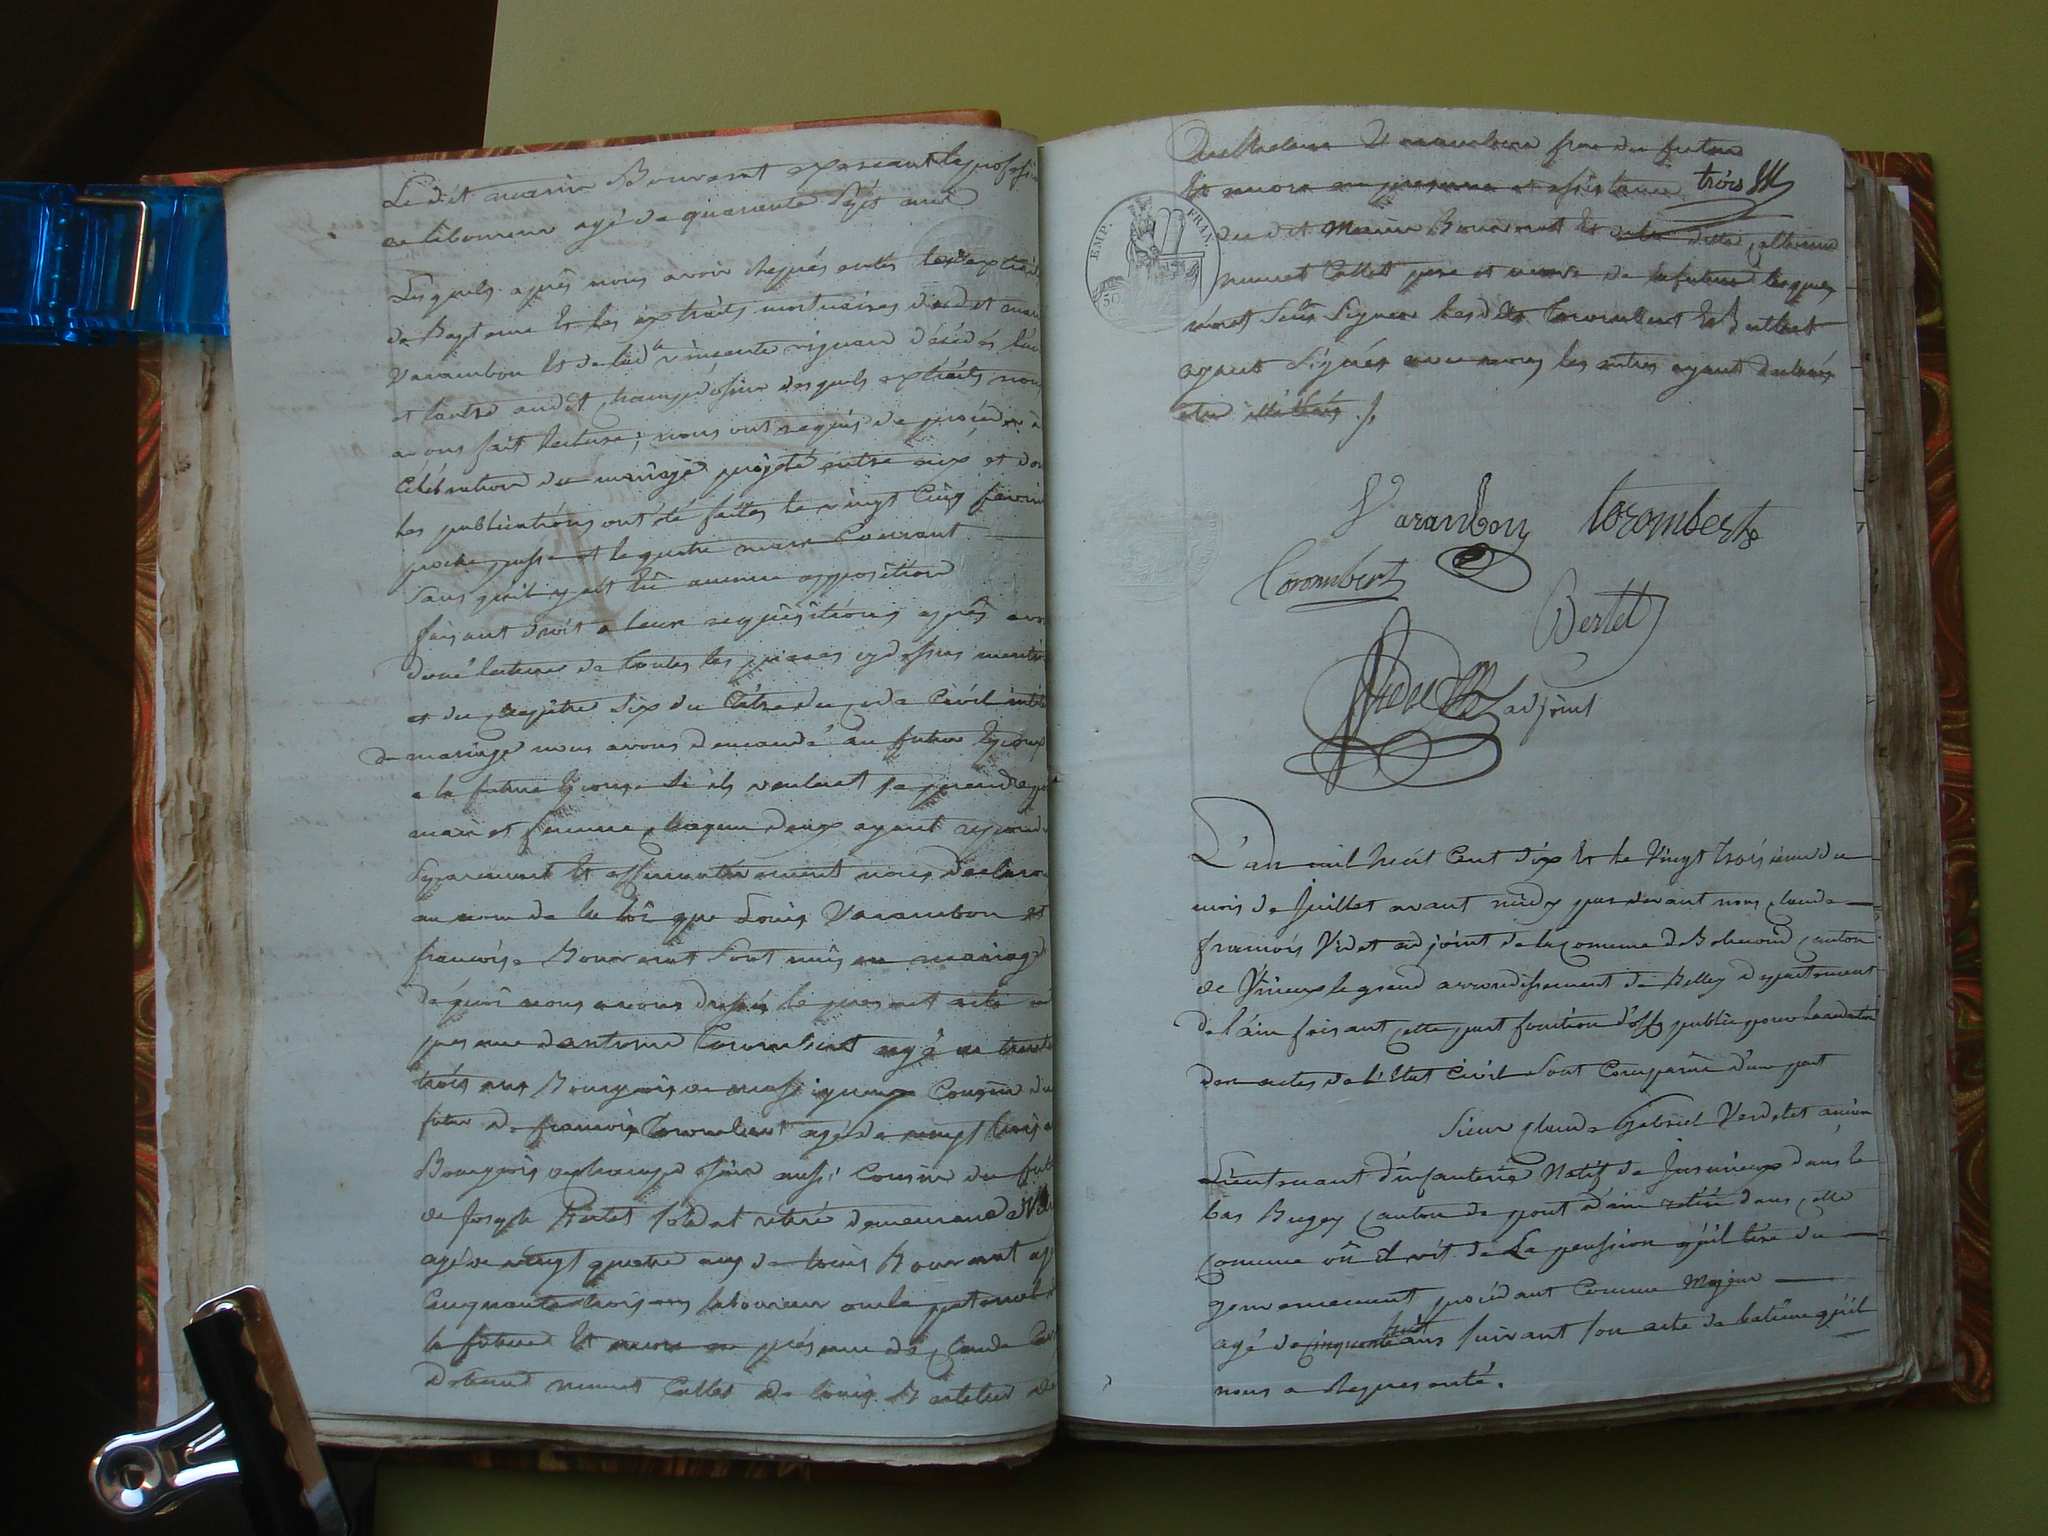 Le dit marin Bouvrent exercant la professi
de laboureur agé de quarante sept ans
Lesquels après nous avoir représentés les extraits
de Bapteme et les extraits mortuaires dudit
Varambon et de lad. vincente décédés l'un
et l'autre audit desquels extraits nous
avons fait lecture; nous ont requis de procéder à
célébration du mariage projeté entre eux et dont
les publications ont été faites le vingt cinq fevrier
proche passé et le quatre mars Courant
sans quil y ait eû aucune opposition
faisant droit a leur requisitions après avoir
doné lecture de toutes les pieces cydessus
et du chapitre six du titre du code Civil intitulé
du mariage nous avons demandé au futur Epoux
a la future Epouse si ils veulent se prendre pour
mari et femme chaqun deux ayant repondu
Separement et affirmativement nous declarons
au nom de la loi que Louis Varambon et
francoise Bouvrent sont unis en mariage
de quoi nous avons dressés le present acte en
presence d'antoine Torombert agé de trente
trois ans Bourgeois de Cousin du
futur de francois Torombert agé de vingt trois
Bourgeois aussi Cousin du futur
de Joseph Bertet soldat retiré demeurand à
agé de vingt quatre ans de louis Bouvrent
Cinquante trois ans laboureur oncle paternel
la future et encore en présence de Claude
Collet de louis
et varambon frere du futur
et encore en presence et assistance trois
du dit Marin Bouvrent et dite catherine
Collet pere et mere de la future lesquels
n'ont scus signer lesdits Torombert et Bertet
ayant signés avec nous les autres ayant declarés
etre illitérés ./.
EMP. FRAN.
50
Varambon Torombert
Torombert
Bertet
Videt adjoint
L'an mil huit Cent dix et le Vingt troisieme du
mois de Juillet avant midy par devant nous claude
francois Videt adjoint de la Comune de Belmond canton
de Virieux le grand arrondissement de Belley departement
de l'ain faisant cette part fonction d'offi. public pour la redaction
des actes de l'Etat Civil sont Comparus d'un part
Sieur claude Gabriel Verdetet ancien
Lieutenant d'infanterie Natif de Jusurieux dans le
bas Bugey canton de pont d'ain retiré dans cette
comune où il vit de La pension qu'il tire du
gouvernement procédant Comme Majeur
agé de cinquante huit ans suivant son acte de batême qu'il
nous a représenté.